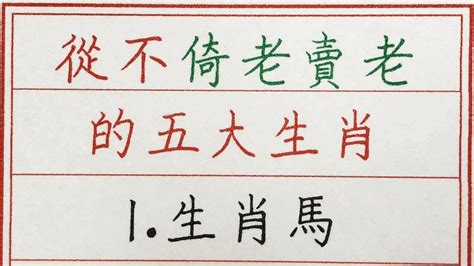 從不倚老賣老
的五大生肖
1.生肖馬